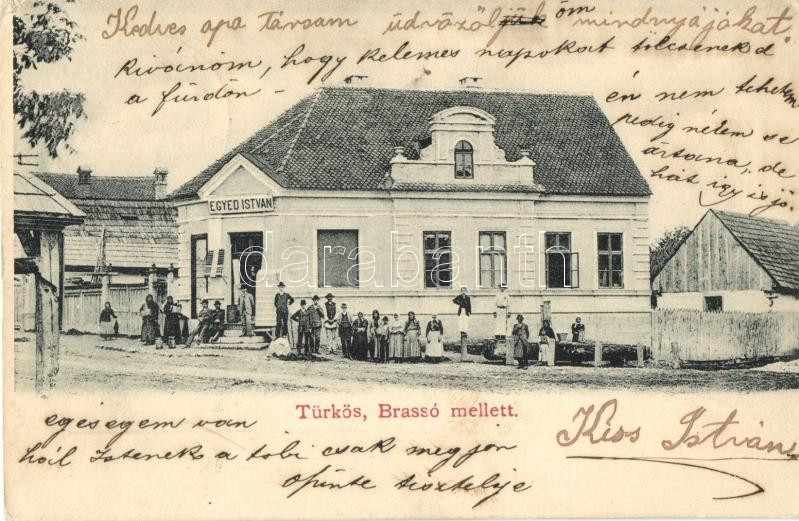 Kedves apa Társam üdvözöljük óm mindnyájókat
Kivánom, hogy kelemes napokat tölcsenek a
a fürdőn –
én nem tehetem
pedig nékem se
ártana, de
hát igy is jó.
EGYED ISTVÁN
darabanth.com
Türkös, Brassó mellett.
egésegem van
hál Istenek a tobi csak megjön
Kiss István
őpinte tisztelője